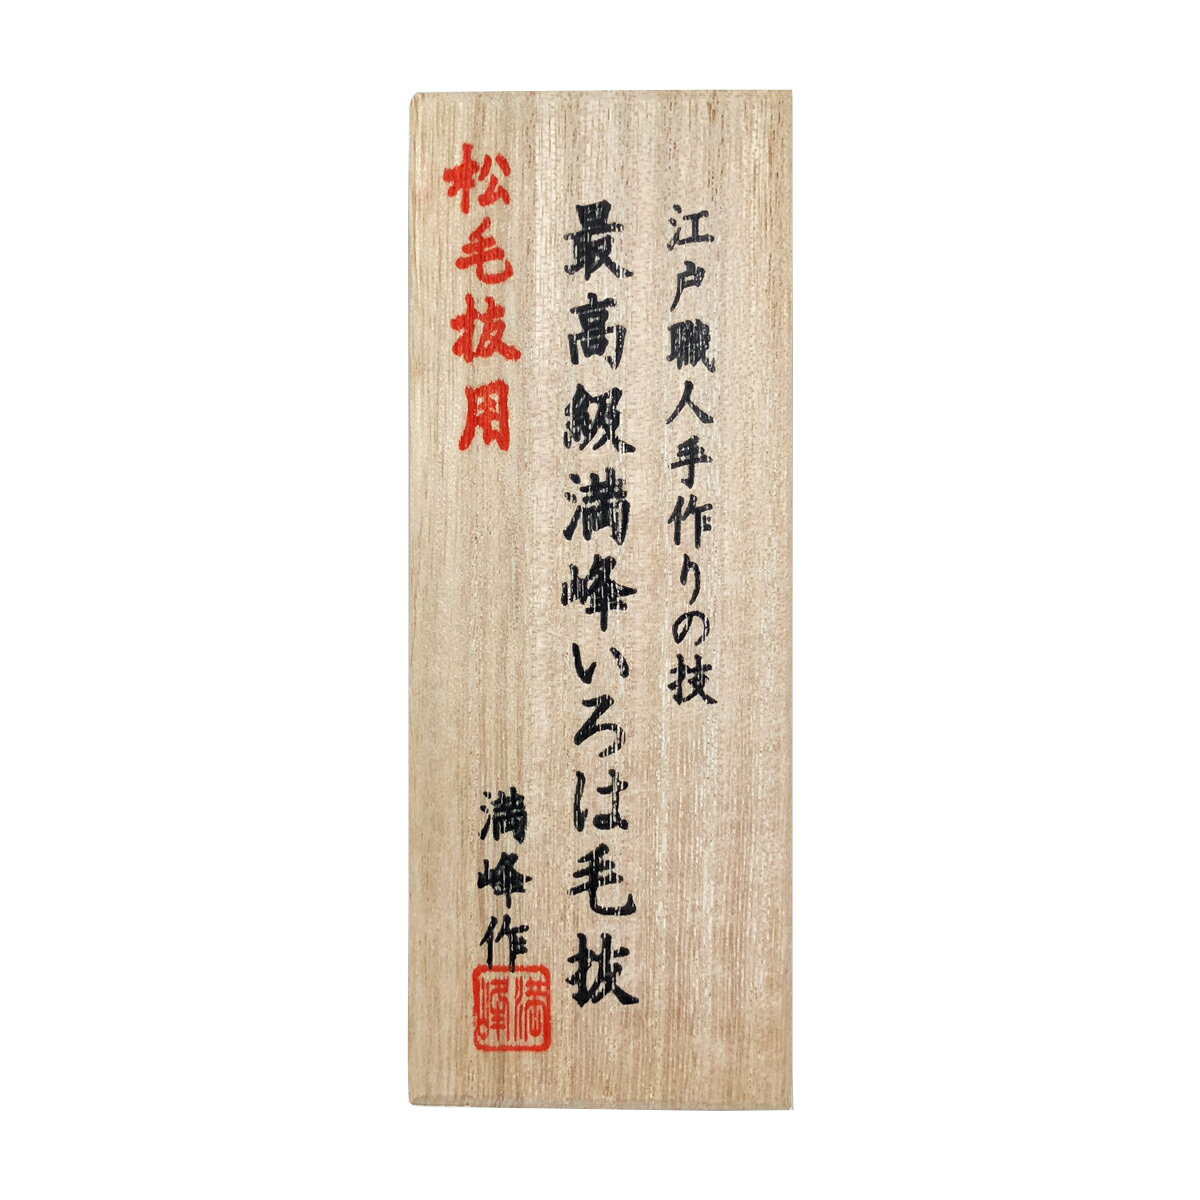 江戸職人手作りの技
最高級満峰いろは毛抜
松毛抜用
満峰作
満峰